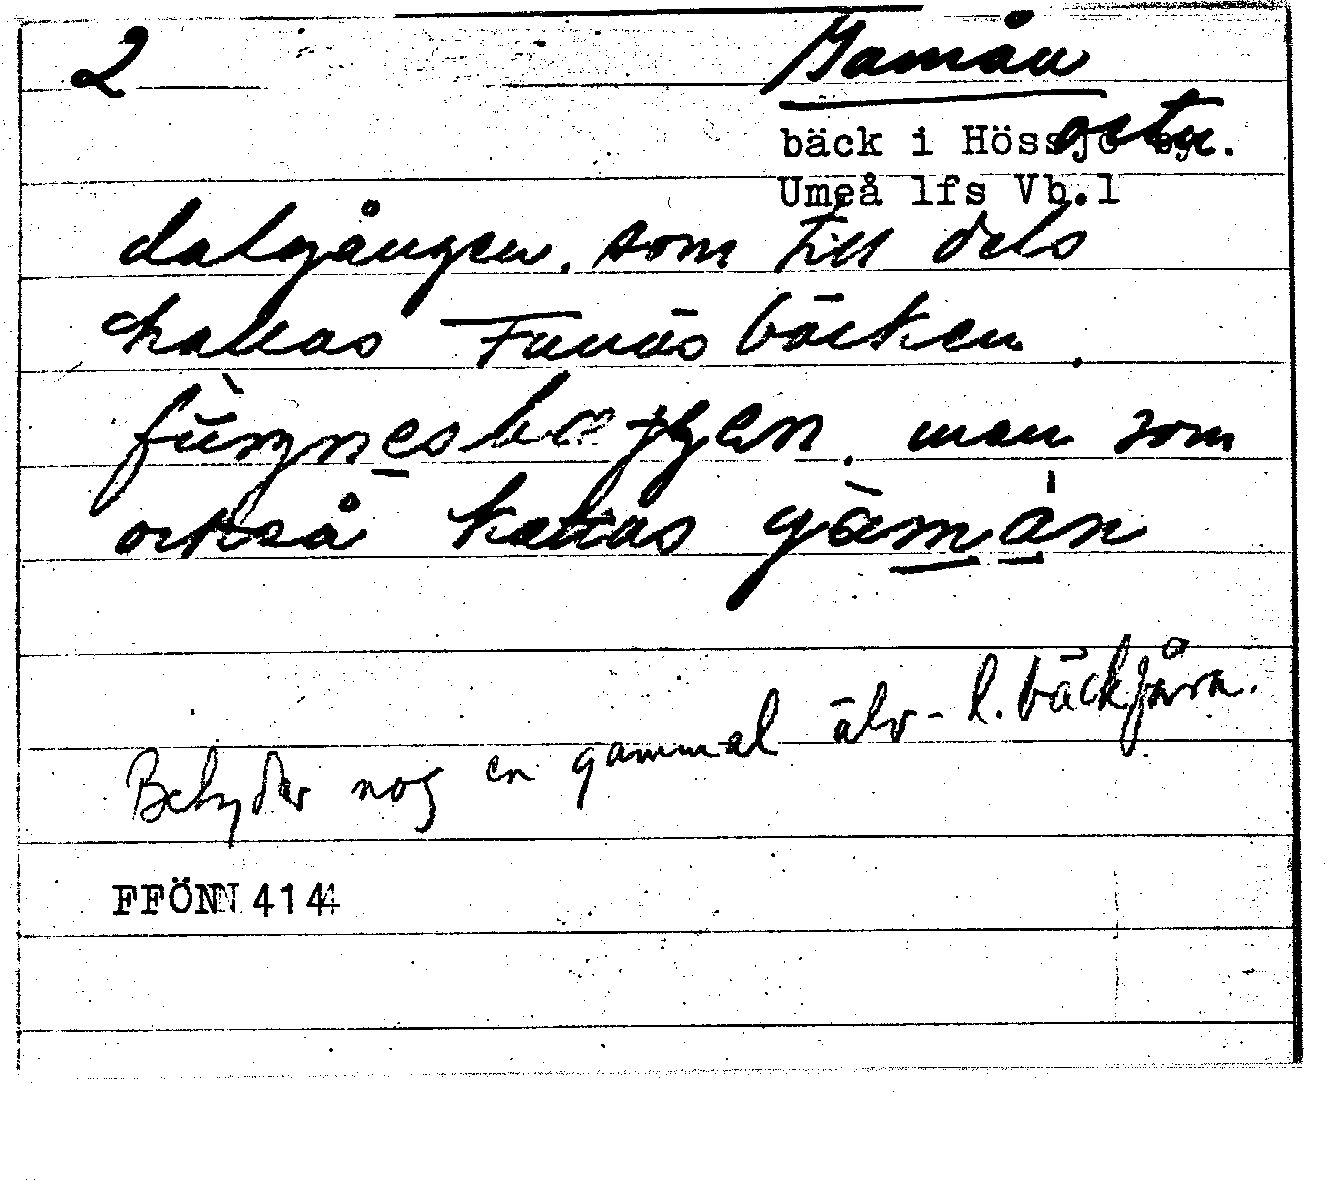 2 Gamån
bäck i Hössjö by.
Umeå lfs Vb.l
dalgången. som till dels
kallas Funäsbäcken.
man som
också kallas gàmán
Betyder nog en gammal älv- l. bäckfåra.
FFÖNN 4144